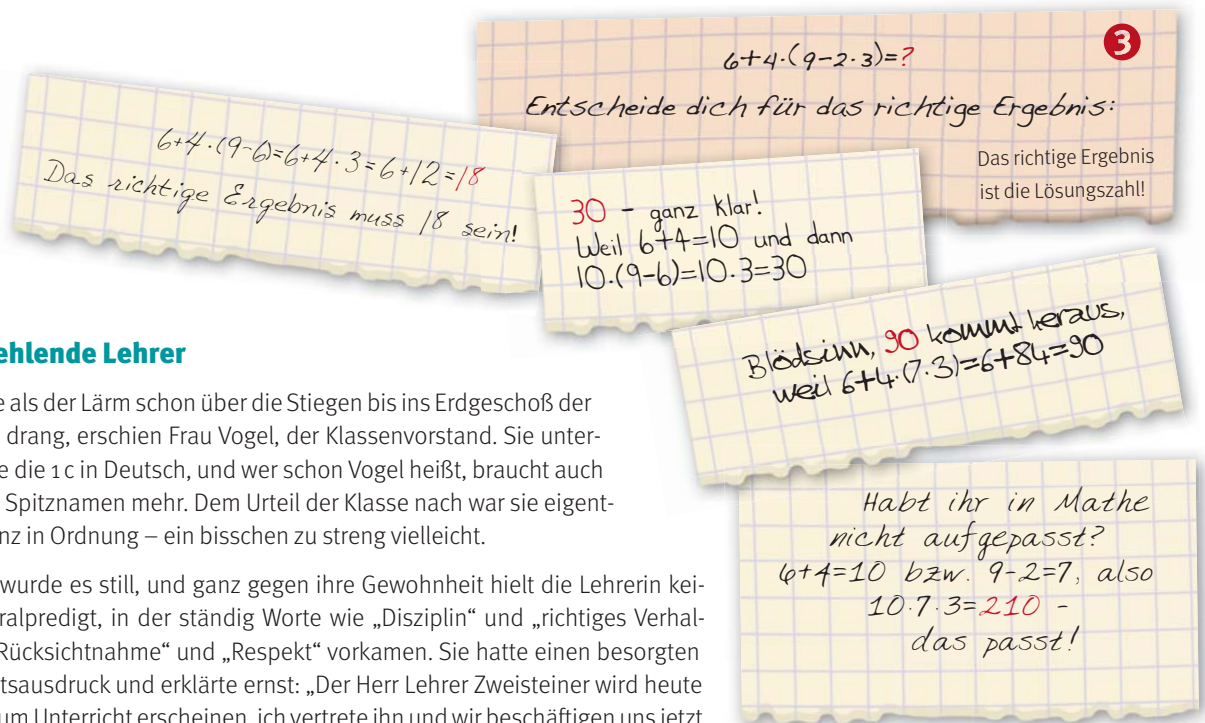 3
6+4·(9−2·3)=?
Entscheide dich für das richtige Ergebnis:
Das richtige Ergebnis
ist die Lösungszahl!
6+4·(9-6)=6+4·3=6+12=18
Das richtige Ergebnis muss 18 sein!
30 - ganz klar!
Weil 6+4=10 und dann
10·(9-6)=10·3=30
Blödsinn, 90 kommt heraus,
weil 6+4·(7·3)=6+84=90
Habt ihr in Mathe
nicht aufgepasst?
6+4=10 bzw. 9-2=7, also
10·7·3=210 -
das passt!
ehlende Lehrer
e als der Lärm schon über die Stiegen bis ins Erdgeschoß der
drang, erschien Frau Vogel, der Klassenvorstand. Sie unter-
e die 1 c in Deutsch, und wer schon Vogel heißt, braucht auch
Spitznamen mehr. Dem Urteil der Klasse nach war sie eigent-
nz in Ordnung – ein bisschen zu streng vielleicht.
wurde es still, und ganz gegen ihre Gewohnheit hielt die Lehrerin kei-
ralpredigt, in der ständig Worte wie „Disziplin“ und „richtiges Verhal-
Rücksichtnahme“ und „Respekt“ vorkamen. Sie hatte einen besorgten
tsausdruck und erklärte ernst: „Der Herr Lehrer Zweisteiner wird heute
um Unterricht erscheinen, ich vertrete ihn und wir beschäftigen uns jetzt